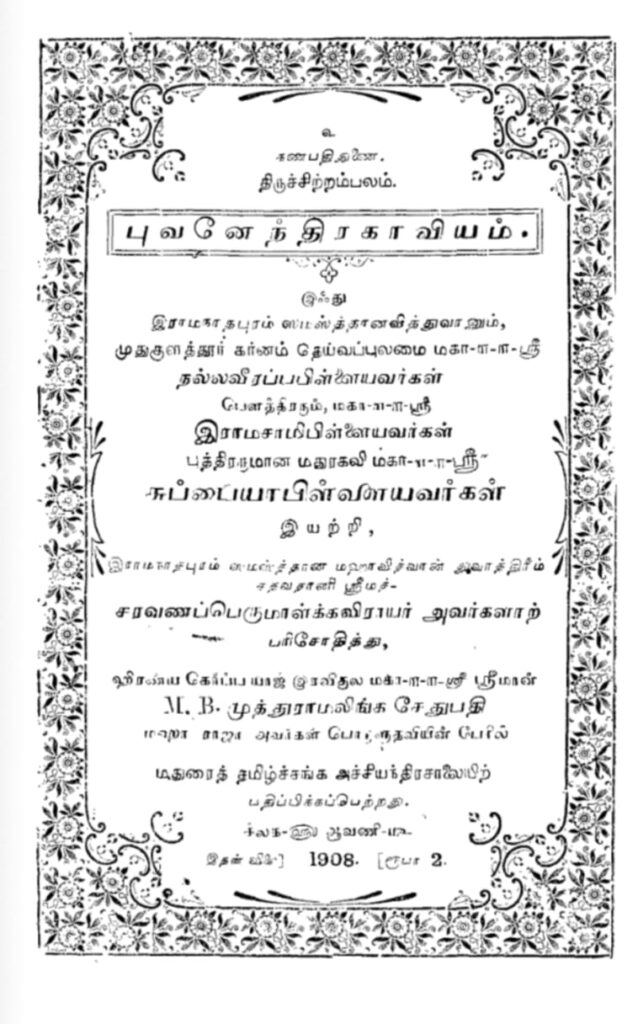 உ
கணபதிதுணை.
திருச்சிற்றம்பலம்.
புவனேந்திரகாவியம்.
இஃது
இராமநாதபுரம் ஸமஸ்த்தானவித்துவானும்,
முதுகுளத்தூர் கர்னம் தெய்வப்புலமை மகா-௱-௱-ஸ்ரீ
நல்லவீரப்பபிள்ளையவர்கள்
பௌத்திரரும், மகா-௱-௱-ஸ்ரீ
இராமசாமிபிள்ளையவர்கள்
புத்திரருமான மதுரகவி மகா-௱-௱-ஸ்ரீ
சுப்பையாபிள்ளையவர்கள்
இயற்றி,
இராமநாதபுரம் ஸமஸ்த்தான மஹாவித்வான்
சதவதானி ஸ்ரீமத்-
சரவணப்பெருமாள்க்கவிராயர் அவர்களாற்
பரிசோதித்து,
ஹிரண்ய கெர்ப்ப யாஜி ரவிகுல மகா-௱-௱-ஸ்ரீ ஸ்ரீமான்
M. B. முத்துராமலிங்க சேதுபதி
மஹா ராஜா அவர்கள் பொருளுதவியின் பேரில்
மதுரைத் தமிழ்ச்சங்க அச்சியந்திரசாலையிற்
பதிப்பிக்கப்பெற்றது.
கீலக-௵ ஆவணி-௴
இதன் விலை] 1908. [ரூபா 2.